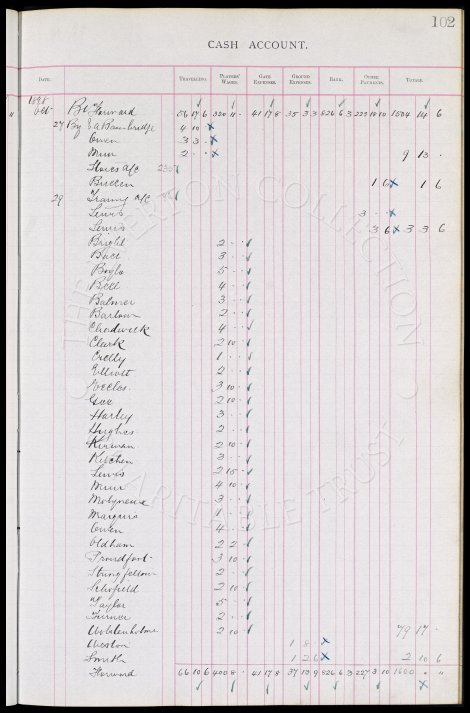 102
CASH ACCOUNT.
DATE. TRAVELLING. PLAYERS' WAGES. GATE EXPENSES. GROUND EXPENSES. BANK. OTHER PAYMENTS. TOTALS.
1898
Oct Bt Forward 56 17 6 320 11 - 41 17 8 35 3 3 826 6 3 223 18 10 1504 14 6
27 By E A Bainbridge 4 10 -
Owen 3 3 -
Muir 2 - - 9 13 -
Stores a/c
Britten 1 6 1 6
29 Tranny a/c
Lewis 3 - -
Lewis 3 6 3 3 6
Bright 2 - -
Buck 3 - -
Boyle 5 - -
Bell 4 - -
Balmer 3 - -
Barlow 2 - -
Chadwick 4 - -
Clark 2 10 -
Crelly 1 - -
Elliott 2 - -
Eccles 3 10 -
Gee 2 10 -
Harley 3 - -
Hughes 2 - -
Kirwan 2 10 -
Kitchen 3 - -
Lewis 2 15 -
Muir 4 10 -
Molyneux 3 - -
Marquis 1 - -
Owen 4 - -
Oldham 2 2 -
Proudfoot 3 10 -
Stringfellow 2 - -
Schofield 2 10 -
Taylor 5 - -
Turner 2 - -
Wolstenholme 2 10 - 79 17 -
Weston 1 8 -
Smith 1 2 6 2 10 6
Forward 66 10 6 400 8 - 41 17 8 37 13 9 826 6 3 227 3 10 1600 " "
THE EVERTON COLLECTION CHARITABLE TRUST